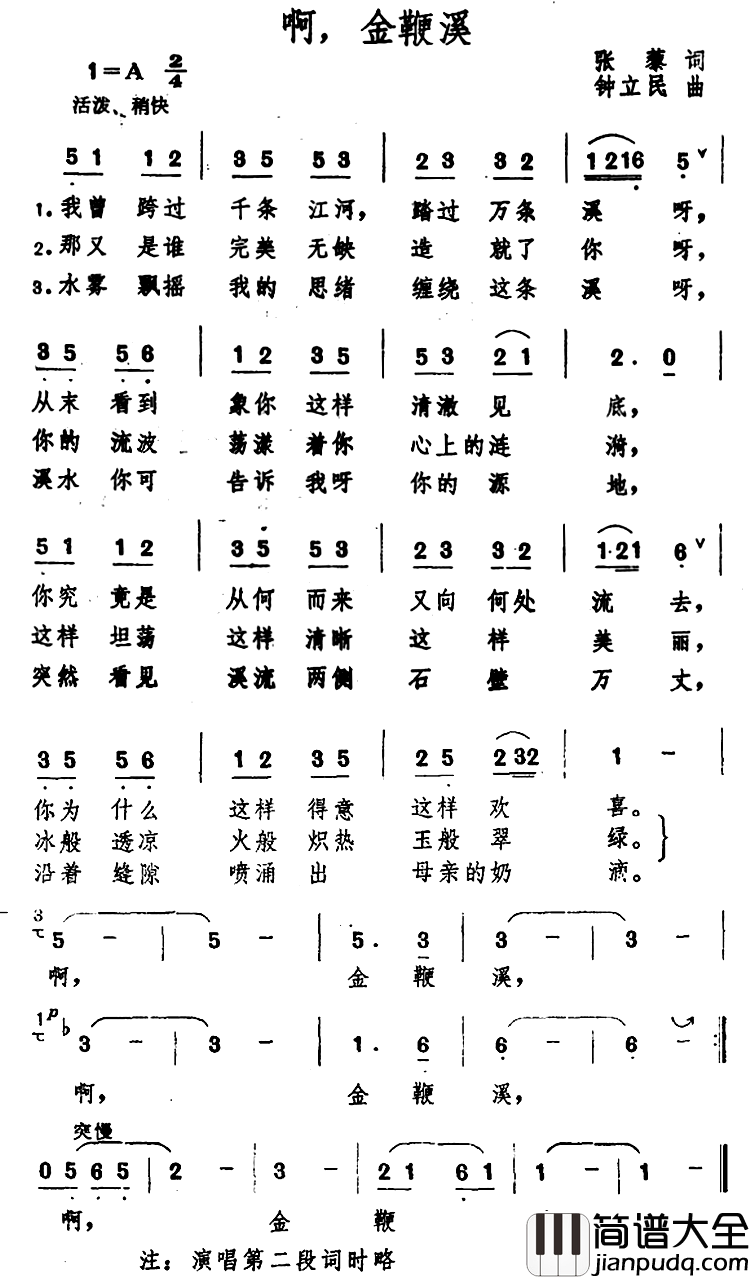 啊，金鞭溪
1=A 2/4
张藜 词
活泼、稍快
钟立民 曲
5 1 1 2 | 3 5 5 3 | 2 3 3 2 | 1 2 1 6 5 ∨ |
1.我曾 跨过 千条 江河， 踏过 万条 溪 呀，
2.那又 是谁 完美 无缺 造 就了 你 呀，
3.水雾 飘摇 我的 思绪 缠绕 这条 溪 呀，
3 5 5 6 | 1 2 3 5 | 5 3 2 1 | 2. 0 |
从末 看到 象你 这样 清澈 见 底，
你的 流波 荡漾 着你 心上 的涟 漪，
溪水 你可 告诉 我呀 你的 源 地，
5 1 1 2 | 3 5 5 3 | 2 3 3 2 | 1·2 1 6 ∨ |
你究 竟是 从何 而来 又向 何处 流 去，
这样 坦荡 这样 清晰 这 样 美 丽，
突然 看见 溪流 两侧 石 壁 万 丈，
3 5 5 6 | 1 2 3 5 | 2 5 2 3 2 | 1 － |
你为 什么 这样 得意 这样 欢 喜。
冰般 透凉 火般 炽热 玉般 翠 绿。
沿着 缝隙 喷涌 出 母亲 的奶 滴。
3 5 － | 5 － | 5. 3 | 3 － | 3 －
啊， 金 鞭 溪，
1 p ♭3 － | 3 － | 1. 6 | 6 － | 6 － :‖
啊， 金 鞭 溪，
突慢
0 5 6 5 | 2 － | 3 － | 2 1 6 1 | 1 － | 1 － ‖
啊， 金 鞭
注：演唱第二段词时略
简谱大全
jianpudq.com